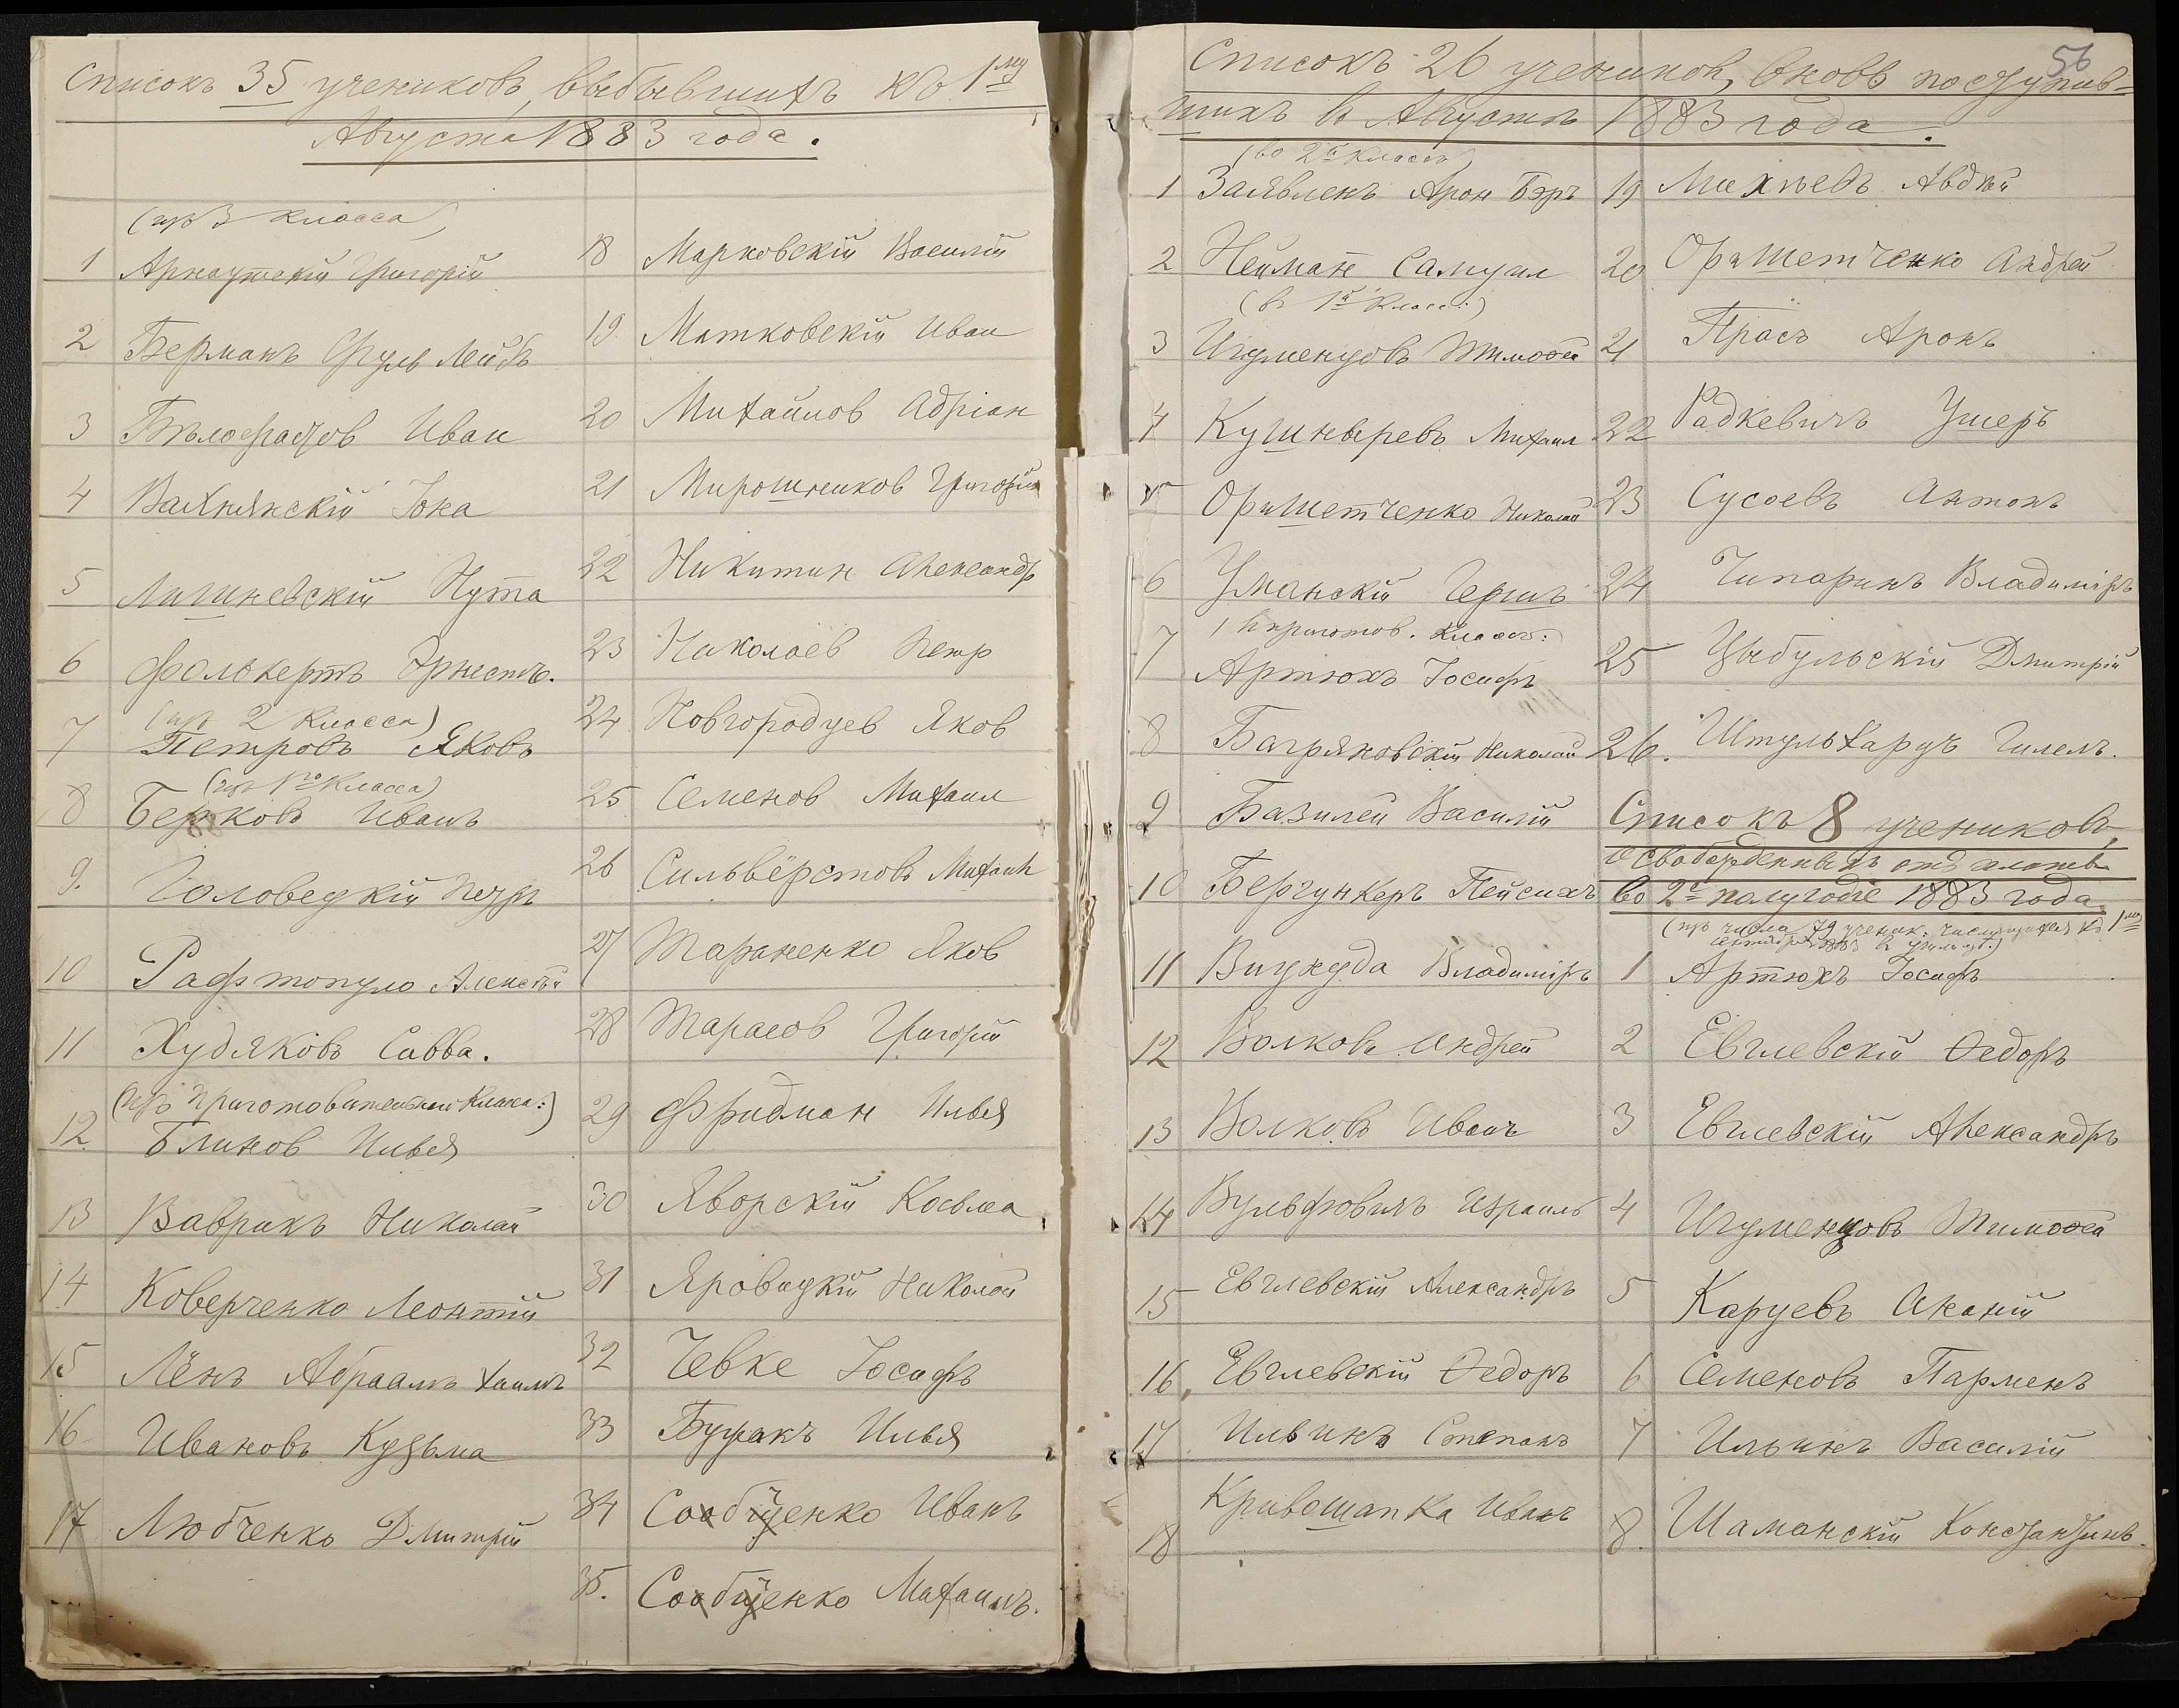 Списокъ 35 учениковъ, выбывшихъ къ 1му
Августа 1883 года.
(изъ 3 класса)
1 Арнаутскій Григорій
2 Берманъ Сруль Лейбъ
3 Бѣлобратов Иван
4 Вахнянскій Іона
5 Лишневскій Нута
6 Фолькертъ Эрнестъ.
(изъ 2 класса)
7 Петровъ Яковъ
(изъ 1го класса)
8 Берковъ Иванъ
9. Головецкій Петръ
10 Рафтопуло Алексѣй
11 Худяковъ Савва.
(изъ приготовительнаго класса:)
12 Блинов Илья
13 Ваврикъ Николай
14 Коверченко Леонтій
15 Лёнъ Абраамъ Хаимъ
16 Ивановъ Кузьма
17 Любченко Дмитрій
18 Марковскій Василій
19 Матковскій Иван
20 Михайлов Адріан
21 Мирошников Григорій
22 Никитин Александр
23 Николаев Петр
24 Новгородцев Яков
25 Семенов Михаил
26 Сильвёрстовъ Михаил
27 Тараненко Яков
28 Тарасов Григорій
29 Фридман Илья
30 Яворскій Косьма
31 Яровицкій Николай
32 Чевке Іосифъ
33 Бузакъ Илья
34 Сообценко Иванъ
35. Сообценко Михаилъ.
56
Списокъ 26 учеников, вновь поступив=
шихъ въ Августѣ 1883 года.
(во 2й классъ)
1 Заявленъ Арон Бэръ
2 Нейман Самуил
(въ 1й класс:)
3 Игуменцовъ Тимоѳей
4 Кушныревъ Михаил
5 Оришетченко Николай
6 Уманскій Гершъ
(въ приготов. класс:
7 Артюхъ Іосифъ
8 Багряновскій Николай
9 Базилей Василій
10 Бергункеръ Пейсахъ
11 Вицкуда Владиміръ
12 Волковъ Андрей
13 Волковъ Иванъ
14 Вульфовичъ Израиль
15 Евглевскій Александръ
16. Евглевскій Ѳедоръ
17 Ильинъ Степанъ
18 Кривошапка Иванъ
19 Михѣевъ Авдѣй
20 Оришетченко Андрей
21 Прасъ Аронъ
22 Радкевичъ Ушеръ
23 Сусоевъ Антонъ
24 Чипаринъ Владиміръ
25 Цыбульскій Дмитрій
26. Штульхарцъ Гилель.
Списокъ 8 учениковъ,
освобожденныхъ отъ платы
во 2е полугодіе 1883 года.
(изъ числа 79 ученик. числящихся къ 1му
сентября въ училищѣ)
1 Артюхъ Іосифъ
2 Евглевскій Ѳедоръ
3 Евглевскій Александръ
4 Игуменцовъ Тимоѳей
5 Каруевъ Ананій
6 Семеновъ Парменъ
7 Ильинъ Василій
8. Шаманскій Константинъ.